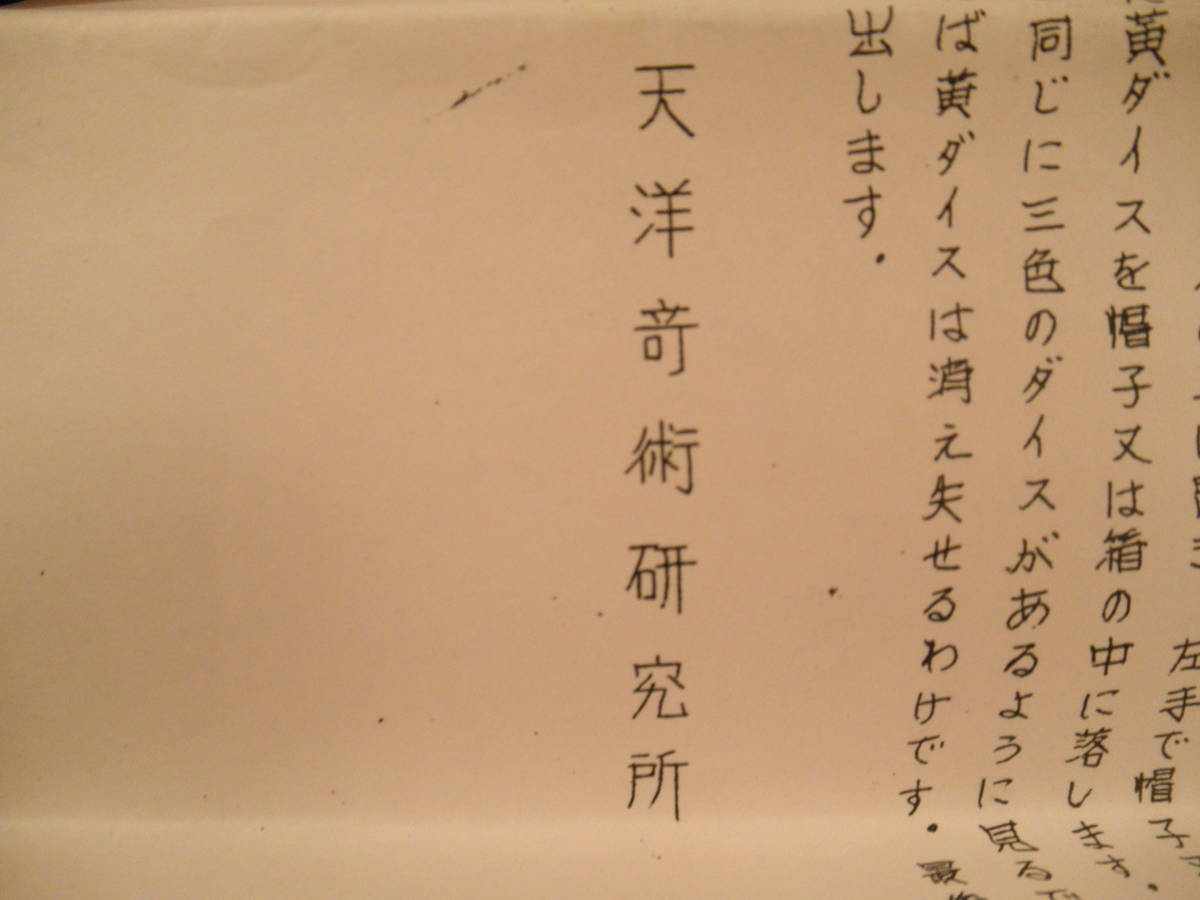 左手で帽子
黄ダイスを帽子又は箱の中に落します。
同じに三色のダイスがあるように見る
ば黄ダイスは消え失せるわけです。最
出します。
天洋奇術研究所